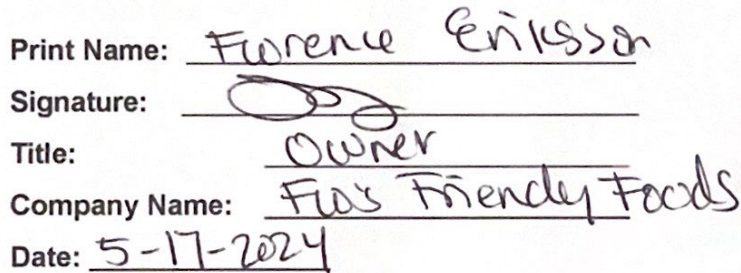 Print Name: Florence Eriksson
Signature:
Title: Owner
Company Name: Flo's Friendly Foods
Date: 5-17-2024